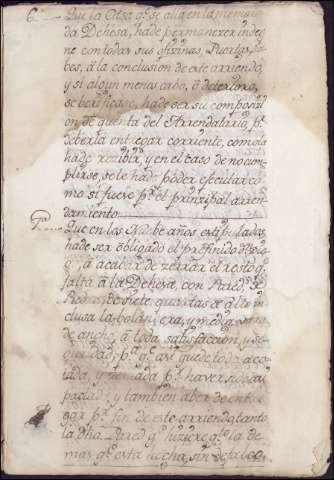 6.. Que la Casa qe. se alla en la memora
da Dehesa, hà de permanezer indeg
ne con todas sus ofizinas, Puertas, Lla
bes, à la conclusion de este arriendo,
y si algun menos cabo, ò deterioro,
se berificase, hà de ser su composizi
on de quenta del Arrendatario, pr.
deberla entregar corriente, como la
hà de recibir, y en el caso de no cum
plirse, se le hà de poder egecutar co
mo si fuese pr. el prinzipal arren
damiento
7a. Que en los Nuebe años estipulados
hà de ser obligado el prefinido
à acabar de zerrar el resto qe.
falta à la Dehesa, con Pared de
Piedra, de siete quartas de alto in
clusa la bolandera, y media
de ancho, à toda satisfaccion, y se
guridad, pr. qe. asi quede toda aco
tada, y zerrada pr. haverse
pactado, y tambien à de entre
gar pr. fin de este arriendo, tanto
la dha. Pared qe. hiziere, qe. la de
mas qe. està hecha, sin